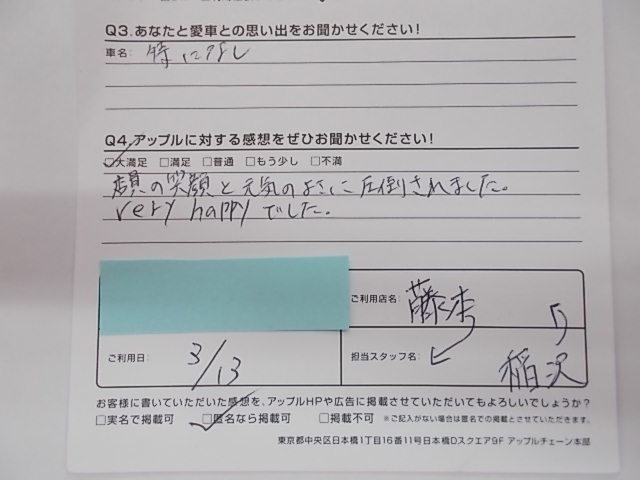 Q3.あなたと愛車との思い出をお聞かせください!
車名: 特になし
Q4.アップルに対する感想をぜひお聞かせください!
☑大満足 □満足 □普通 □もう少し □不満
店員の笑顔と元気のよさに圧倒されました。
very happyでした。
ご利用店名: 藤本
ご利用日: 3/13 担当スタッフ名: 稲沢
お客様に書いていただいた感想を、アップルHPや広告に掲載させていただいてもよろしいでしょうか?
□実名で掲載可 ☑匿名なら掲載可 □掲載不可 ※ご記入がない場合は匿名での掲載とさせていただきます。
東京都中央区日本橋1丁目16番11号日本橋Dスクエア9F アップルチェーン本部